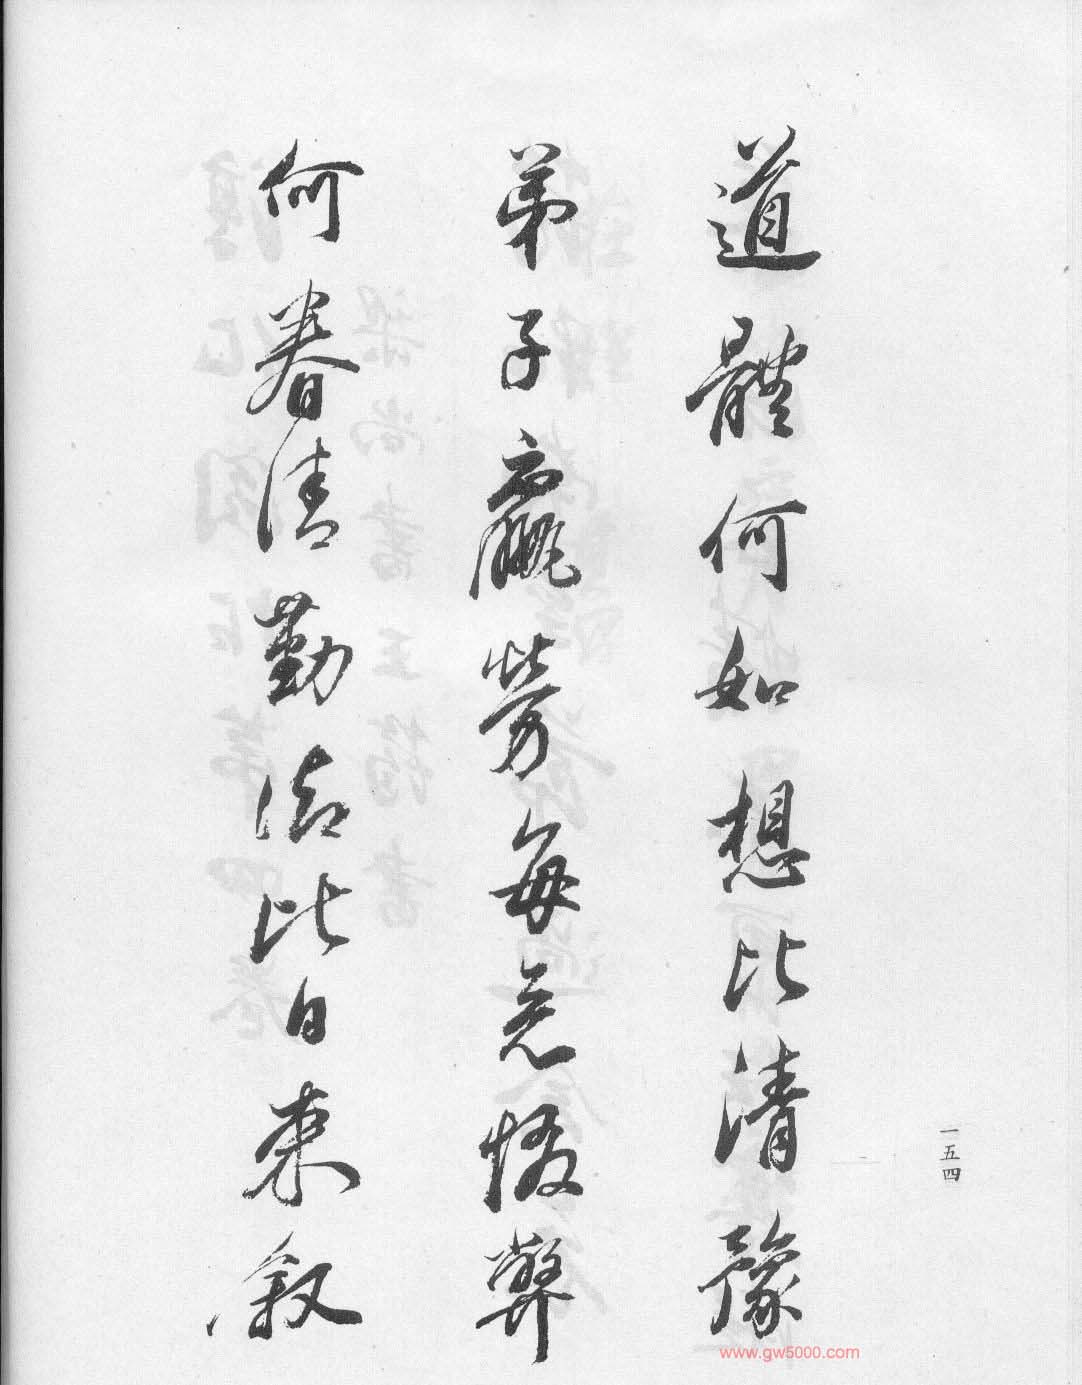 道體何如想比清豫
弟子羸勞每惙弊
何勤比日來叙
一五四
www.gw5000.com